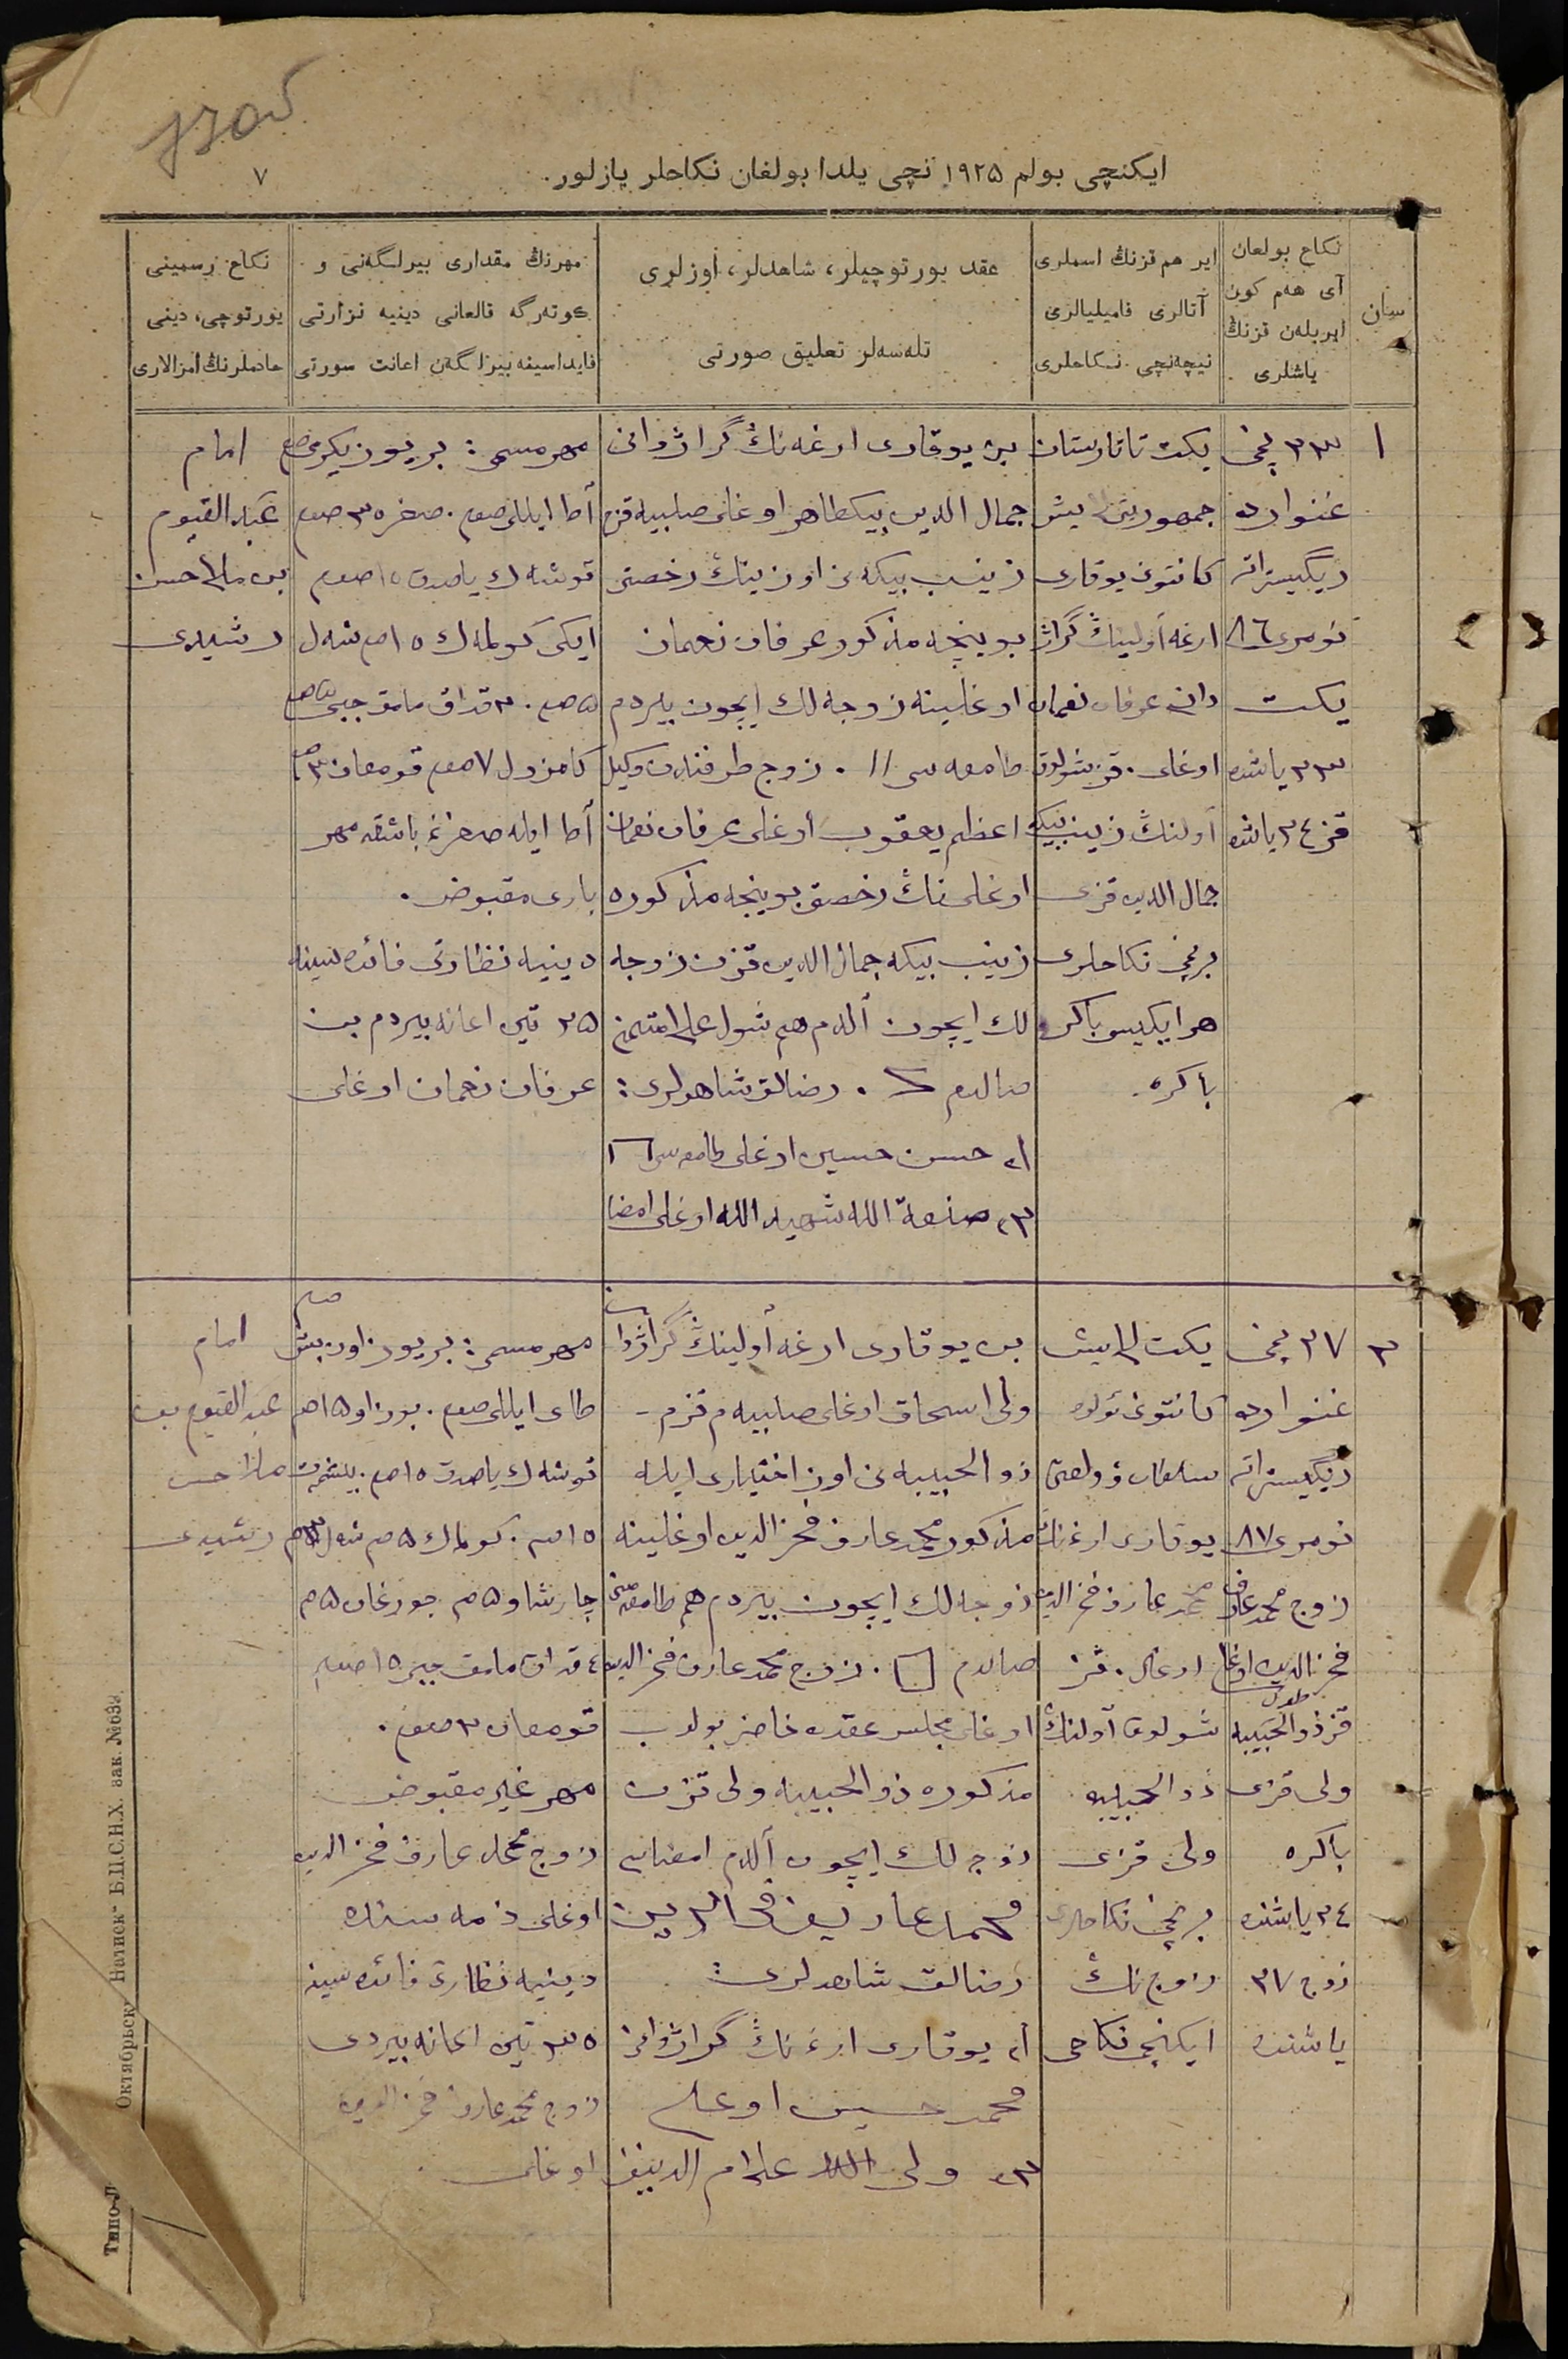 ٧
ایكنچی بولم ١٩٢٥ نچی یلدا بولغان نكاحلر یازلور.
سان
نكاح بولغان
آی هەم كون
ایر بلەن قزنڭ
یاشلری
ایر هم قزنڭ اسملری
آتالری فامیلیالری
نیچەنچی نكاحلری
عقد یورتوچیلر، شاهدلر، اوزلری
تلەسەلر تعلیق صورتی
مهرنڭ مقداری بیرلگەنی و
كوتەرگە قالغانی دینیە نزارتی
فایداسینە بیرلگەن اعانت سورتی
نكاح رسمینی
یورتوچی، دینی
خادملرنڭ امزالاری
١
٢٣ نچی
غنواردە
ریگیستراتسە
نومری ٨٦
یكت
٢٣ یاشندە
قز ٢٤ یاشندە
یكت تاتارستان
جمهوریتی لایش
كانتون یوقاری
ارغە آولینڭ گراژ
دانی عرفان نعمان
اوغلی. قز شولوق
آولنڭ زینب بیكە
جمال الدین قزی
برنچی نكاحلری
هر ایكیسی باكر
باكرە.
بن یوقاری ارغەنڭ گراژدانی
جمال الدین بیكطاهر اوغلی صلبیە قزم
زینب بیكەنی اوزینڭ رخصتی
بوینچە مذكور عرفان نعمان
اوغلینە زوجەلك ایچون بیردم
طامغەسی //. زوج طرفندن وكیل
اعظم یعقوب اوغلی عرفان نعمان
اوغلی نڭ رخصتی بوینچە مذكورە
زینب بیكە جمال الدین قزن زوجە
لك ایچون آلدم هم شول علامتمنی
صالدم. رضالق شاهدلری:
١، حسن حسین اوغلی طامغەسی
٢، صنعة الله شهید الله اوغلی امضا
مهر مسمی: بر یوز یكرمی صوم
آطا ایللی صوم. صغر ٣٥ صوم
توشەك یاصدق ١٥ صوم
ایكی كولمەك ١٥ صم شەل
٥ صم. ٢ قداق مامق جبی
كامزول ٧ صوم قومغان
آطا ایلە صغرغە باشقە مهر
باری مقبوض.
دینیە نظارتی فائدەسینە
٢٥ تین اعانە بیردم بن
عرفان نعمان اوغلی
امام
عبد القیوم
بن ملا حسن
رشیدی
٢
٢٧ نچی
غنواردە
ریگیستراتسە
نومری ٨٧
زوج محمد عارف
فخر الدین اوغلی
قز ذو الحبیبە
ولی قزی
باكرە
٢٤ یاشندە
زوج ٢٧
یاشندە
یكت لایش
كانتونی
یوقاری ارغەنڭ
محمد عارف فخر الدین
اوغلی. قز
شولوق آولنڭ
ذو الحبیبە
ولی قزی
برنچی نكاحلری
زوج نڭ
ایكنچی نكاحی
بن یوقاری ارغە آولینڭ گراژدانی
ولی اسحاق اوغلی صلبیەم قزم
ذو الحبیبەنی اوز اختیاری ایلە
مذكور محمد عارف فخر الدین اوغلینە
زوجەلك ایچون بیردم هم طامغەمنی
صالدم. زوج محمد عارف فخر الدین
اوغلی مجلس عقدە حاضر بولوب
مذكورە ذو الحبیبە ولی قزن
زوجەلك ایچون آلدم امضایم
محمد عاریف فخرالدین
رضالق شاهدلری:
١، یوقاری ارغەنڭ گراژدانی
محمد حسین اوغلی
٢، ولی الله علام الدینف اوغلی
مهر مسمی: بر یوز اون بیش صم
طای ایللی صوم. بوزاو ١٥ صم
توشەك یاصدق ١٥ صم. بیشمت
١٥ صم. كولمك ٥ صم شەل ٣ صم
چارشاو ٥ صم جورغان ٥ صم
٤ قداق مامق جیر ١٥ صوم
قومغان ٢ صوم.
مهر غیر مقبوض
زوج محمد عارف فخر الدین
اوغلی ذمەسندە
دینیە نظارتی فائدەسینە
٢٥ تین اعانە بیردی
زوج محمد عارف فخر الدین
اوغلی
امام
عبد القیوم بن
ملا حسن
رشیدی
Октябрьск Натиск" Б.Ц.С.Н.Х. зак. №63